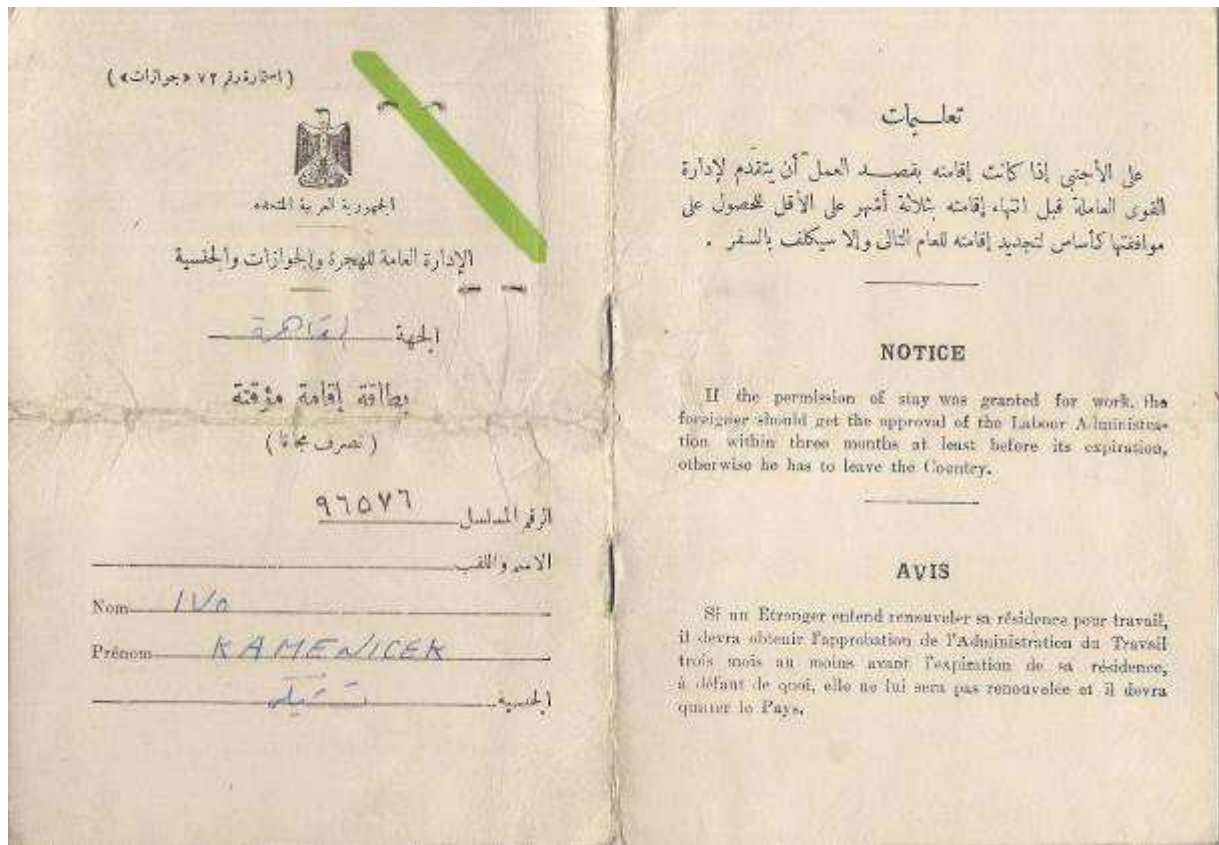 (استمارة رقم ٧٢ «جوازات»)
الجمهورية العربية المتحدة
الإدارة العامة للهجرة والجوازات والجنسية
الجهة القاهرة
بطاقة إقامة مؤقتة
(تصرف مجانا)
الرقم المسلسل ٩٦٥٧٦
الاسم واللقب
Nom IVO
Prénom KAMENICEK
الجنسية
تعليمات
على الأجنبى إذا كانت إقامته بقصد العمل أن يتقدم لإدارة
القوى العاملة قبل انتهاء إقامته بثلاثة أشهر على الأقل للحصول على
موافقتها كأساس لتجديد إقامته للعام التالى وإلا سيكلف بالسفر .
NOTICE
If the permission of stay was granted for work, the
foreigner should get the approval of the Labour Administra-
tion within three months at least before its expiration,
otherwise he has to leave the Country.
AVIS
Si un Etranger entend renouveler sa résidence pour travail,
il devra obtenir l'approbation de l'Administration du Travail
trois mois au moins avant l'expiration de sa résidence,
à défaut de quoi, elle ne lui sera pas renouvelée et il devra
quitter le Pays.